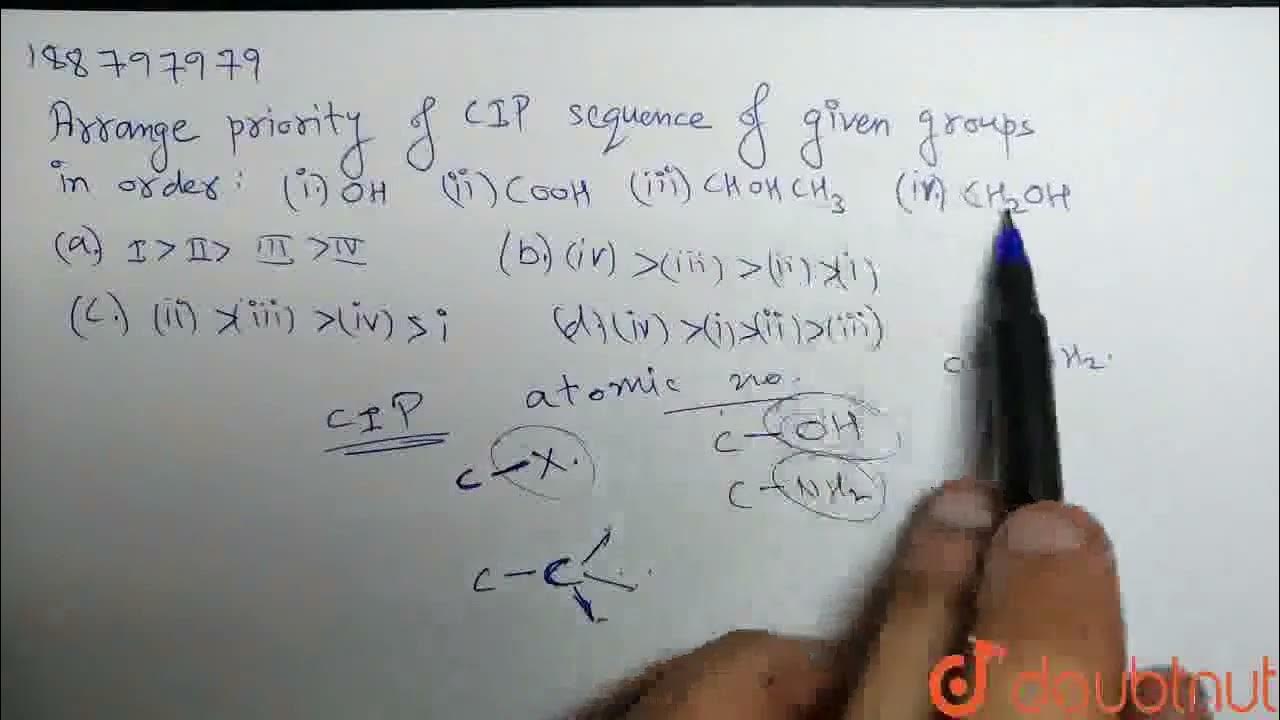 188797979
Arrange priority of CIP sequence of given groups
in order: (i.) OH (ii) COOH (iii) CHOHCH3 (iv) CH2OH
(a.) I > II > III > IV (b.) (iv) > (iii) > (ii) > (i)
(c.) (ii) > (iii) > (iv) > i (d.) (iv) > (i) > (ii) > (iii)
H2.
CIP atomic no.
C-X. C-OH
C-NH2
C-C
doubtnut